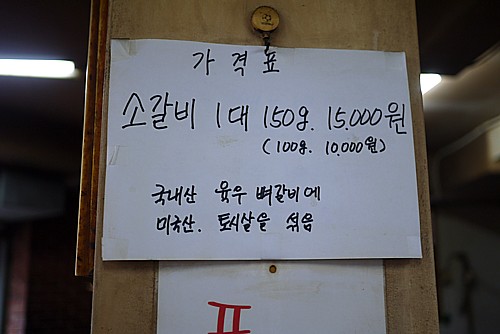 가격표
소갈비 1대 150g. 15.000원
(100g. 10.000원)
국내산 육우 뼈갈비에
미국산. 토시살을 섞음
표